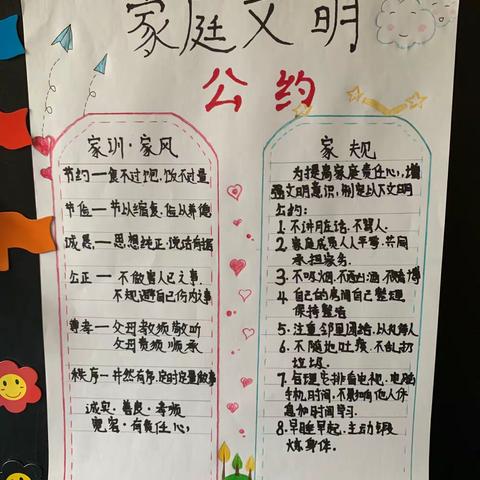 家庭文明
公约
家训·家风
节约一食不过饱，饭不过量
节俭一
诚恳，一思想纯正，说话有据
公正一 不做害人己之事，
尊孝一父母教须敬听
父母责须顺承
秩序一井然有序，定时定量做事
诚实·善良·孝顺
宽容·有责任心
家规
为提高家庭责任心，增
强文明意识，制定以下文明
公约：
1.不讲脏话、不骂人.
2.家庭成员人人平等，共同
承担家务.
3.不吸烟、不酗酒、不赌博
4.自己的房间自己整理
保持整洁
5.注重邻里团结，
6.不随地吐痰，不乱扔
垃圾.
7.合理安排看电视、电脑
手机时间，不影响他人休
息和时间学习.
8.早睡早起.主动锻
炼身体.